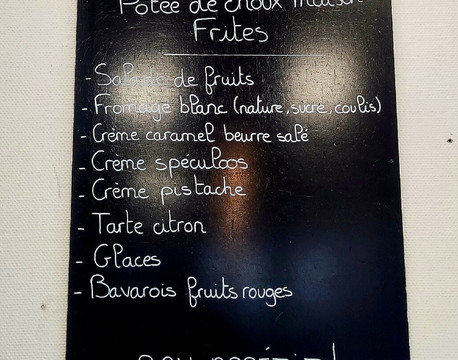 Potée de choux maison
Frites
- Salade de fruits
- Fromage blanc (nature, sucre, coulis)
- Crème caramel beurre salé
- Crème spéculoos
- Crème pistache
- Tarte citron
- Glaces
- Bavarois fruits rouges